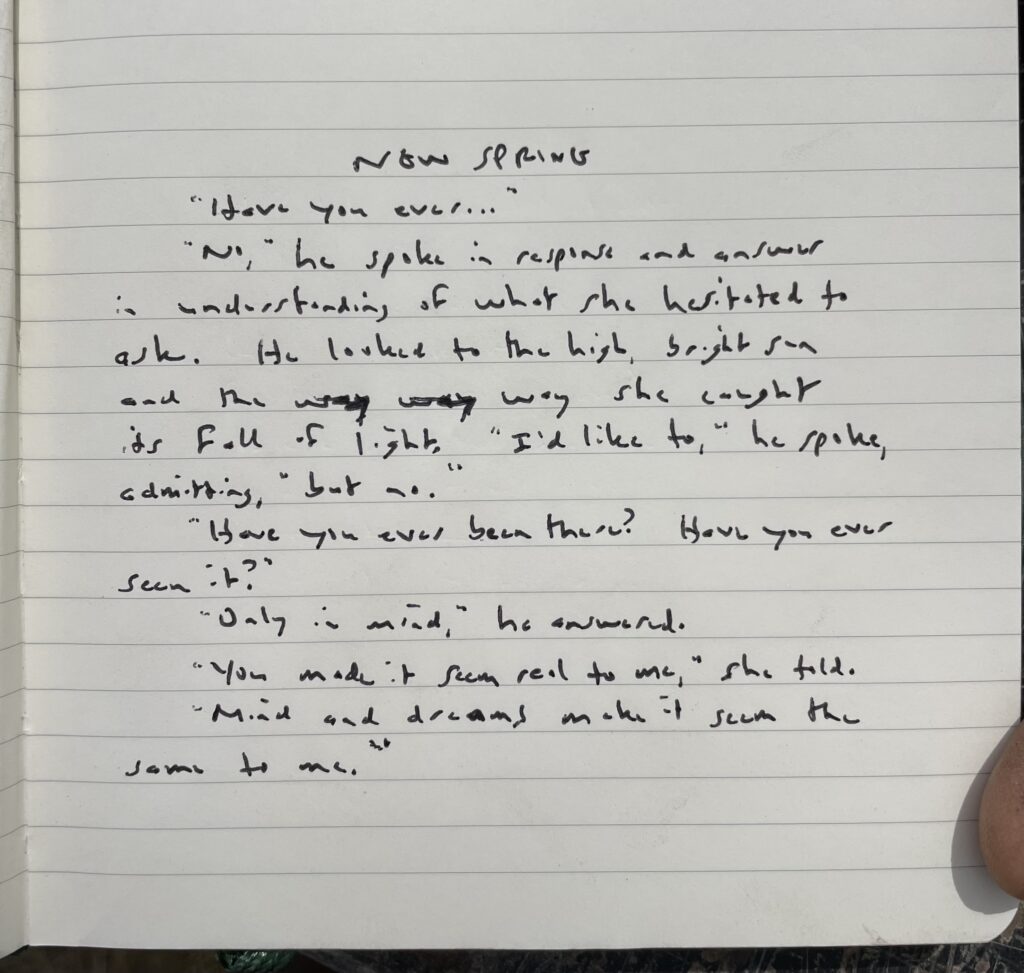 NEW SPRING
"Have you ever..."
"No," he spoke in response and answer
in understanding of what she hesitated to
ask. He looked to the high, bright sun
and the way way way she caught
its fall of light. "I'd like to," he spoke,
admitting, "but no."
"Have you ever been there? Have you ever
seen it?"
"Only in mind," he answered.
"You made it seem real to me," she told.
"Mind and dreams make it seem the
same to me."